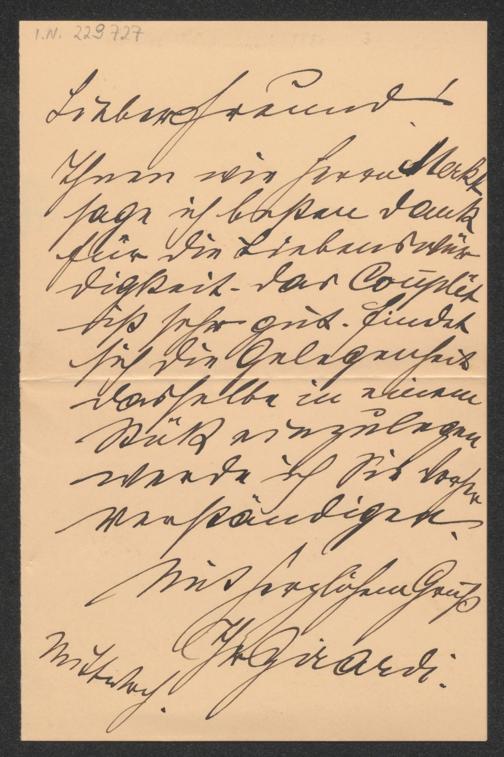 I.N. 229727
Lieber Freund!
Ihnen wie Herrn Merkt
sage ich besten Dank
für die Liebenswür
digkeit. das Couplet
ist sehr gut. findet
sich die Gelegenheit
dasselbe in einem
Stük einzulegen
werde ich Sie vorher
verständigen.
Mit herzlichem Gruß
Ihr Girardi.
Mittwoch.